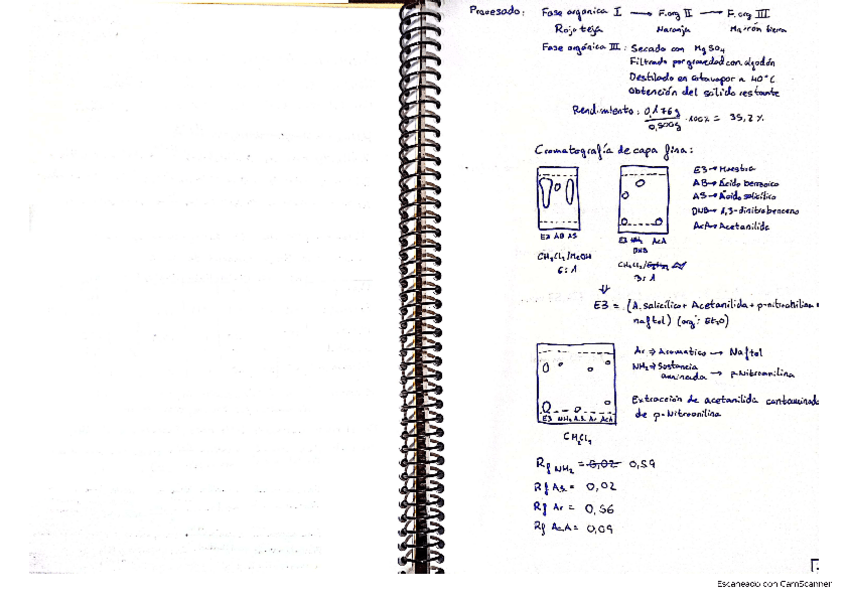 Procesado: Fase orgánica I → F.org II → F.org III
Rojo teja Naranja Marrón tierra
Fase orgánica III: Secado con MgSO4
Filtrado por gravedad con algodón
Destilado en rotavapor a 40°C
Obtención del sólido restante
Rendimiento: 0,176g / 0,500g · 100% = 35,2 %
Cromatografía de capa fina:
E3 → Muestra
AB → Ácido benzoico
AS → Ácido salicílico
DNB → 1,3-dinitrobenceno
AcA → Acetanilida
E3 AB AS
CH2Cl2/MeOH
6:1
E3 NH2 AcA
DNB
CH2Cl2/
3:1
⇓
E3 = (A. salicílico + Acetanilida + p-nitroanilina +
naftol) (org: Et2O)
Ar ⇒ Aromático → Naftol
NH2 ⇒ Sustancia
aminada → p-Nitroanilina
Extracción de acetanilida contaminada
de p-Nitroanilina
E3 NH2 A.S. Ar AcA
CH2Cl2
Rf NH2 = 0,02 0,59
Rf As = 0,02
Rf Ar = 0,56
Rf AcA = 0,09
Escaneado con CamScanner